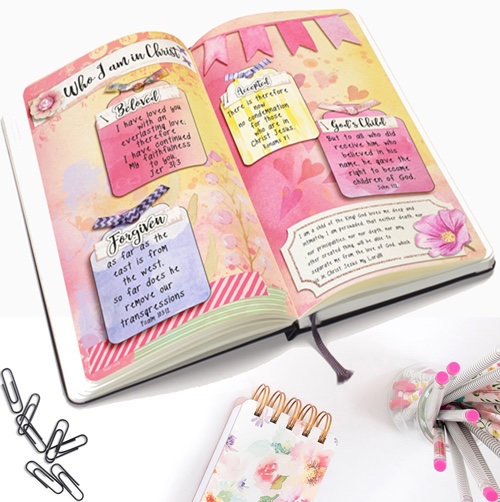 Who I am in Christ
Beloved
I have loved you
with an
everlasting love;
therefore
I have continued
my faithfulness
to you.
Jer 31:3
Forgiven
as far as the
east is from
the west,
so far does he
remove our
transgressions
Psalm 103:12
Accepted
There is therefore
now
no condemnation
for those
who are in
Christ Jesus.
Romans 8:1
God's Child
But to all who did
receive him, who
believed in his
name, he gave the
right to become
children of God,
John 1:12
I am a child of the King! God loves me deep and
intimately. I am persuaded that neither death, nor
nor principalities, nor depth, nor any
other created thing, will be able to
separate me from the love of God, which
is in Christ Jesus my Lord!!!